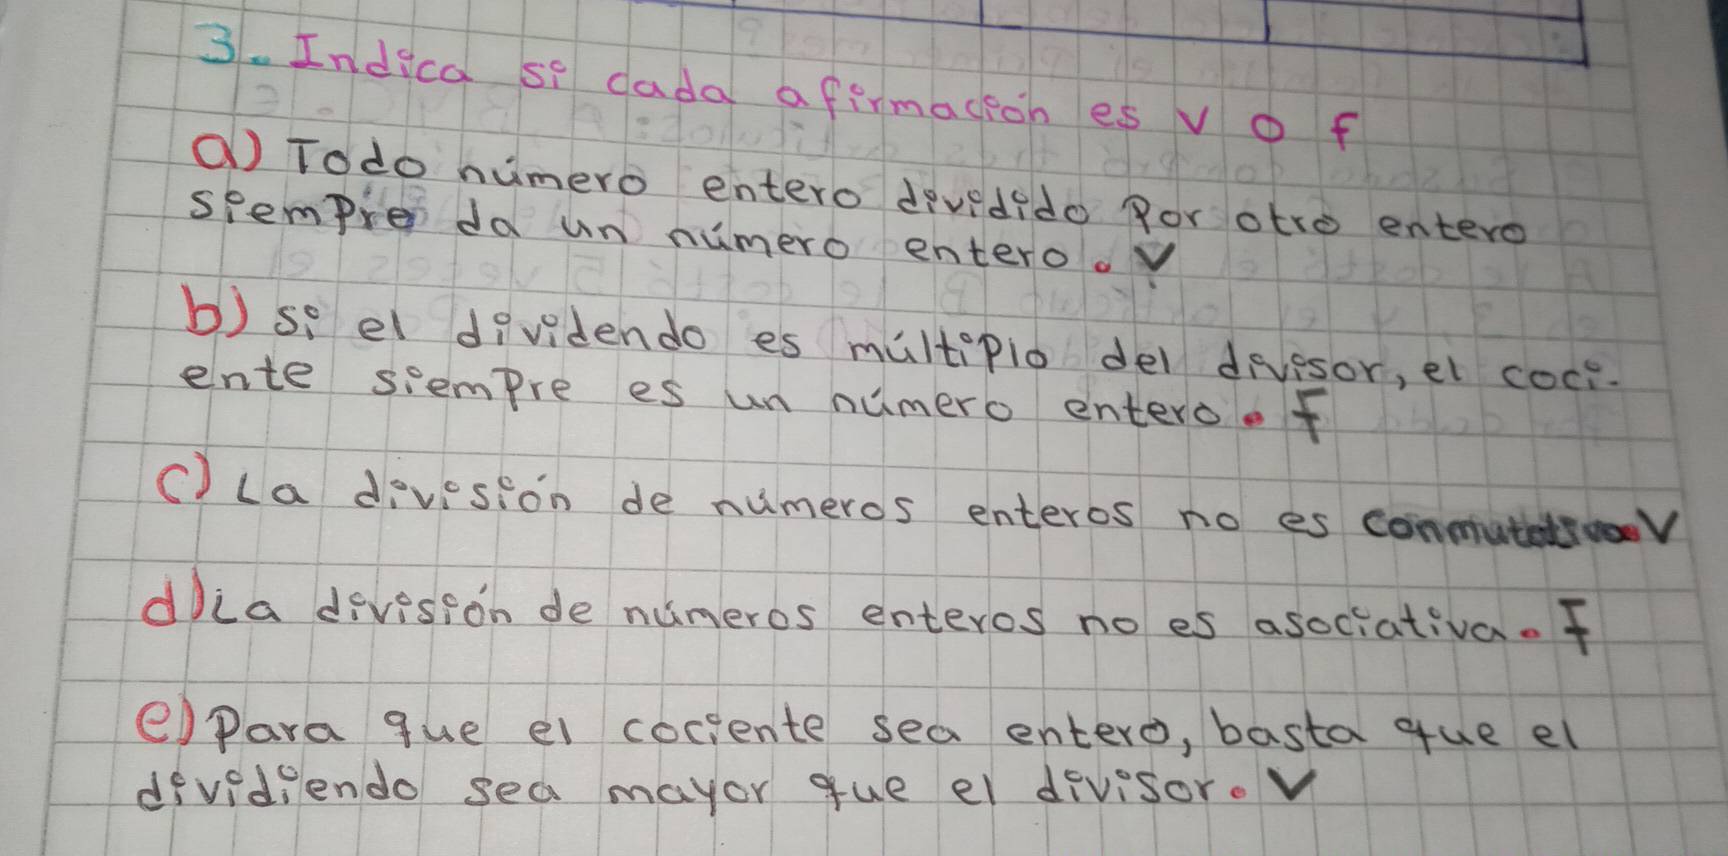 3. Indica si cada afirmación es v o f
a) Todo número entero dividido Por otro entero
siempre da un número entero. V
b) si el dividendo es múltiplo del divisor, el coci-
ente siempre es un número entero. F
c) La división de números enteros no es conmutativa V
d) La división de números enteros no es asociativa. F
e) Para que el cociente sea entero, basta que el
dividiendo sea mayor que el divisor. V